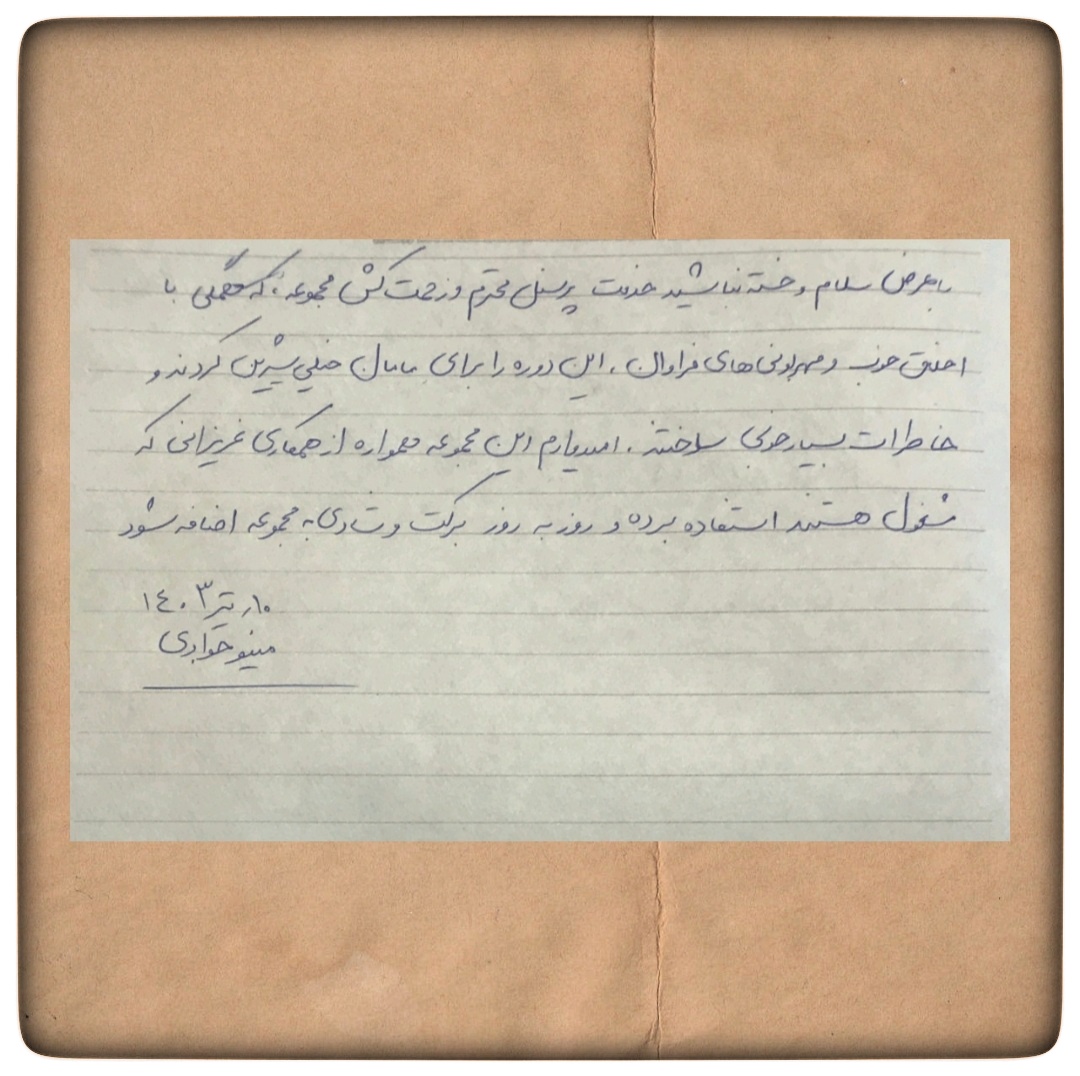 با عرض سلام و خسته نباشید خدمت پرسنل محترم و زحمت کش مجموعه، که همگی با
اخلاق خوب و مهربونی های فراوان، این دوره را برای مامان خیلی شیرین کردند و
خاطرات بسیار خوبی ساختند. امیدوارم این مجموعه همواره از همکاری عزیزانی که
مشغول هستند استفاده برده و روز به روز برکت و شادی به مجموعه اضافه شود
۱۰ر تیر ۱٤۰۳
مینو جوادی